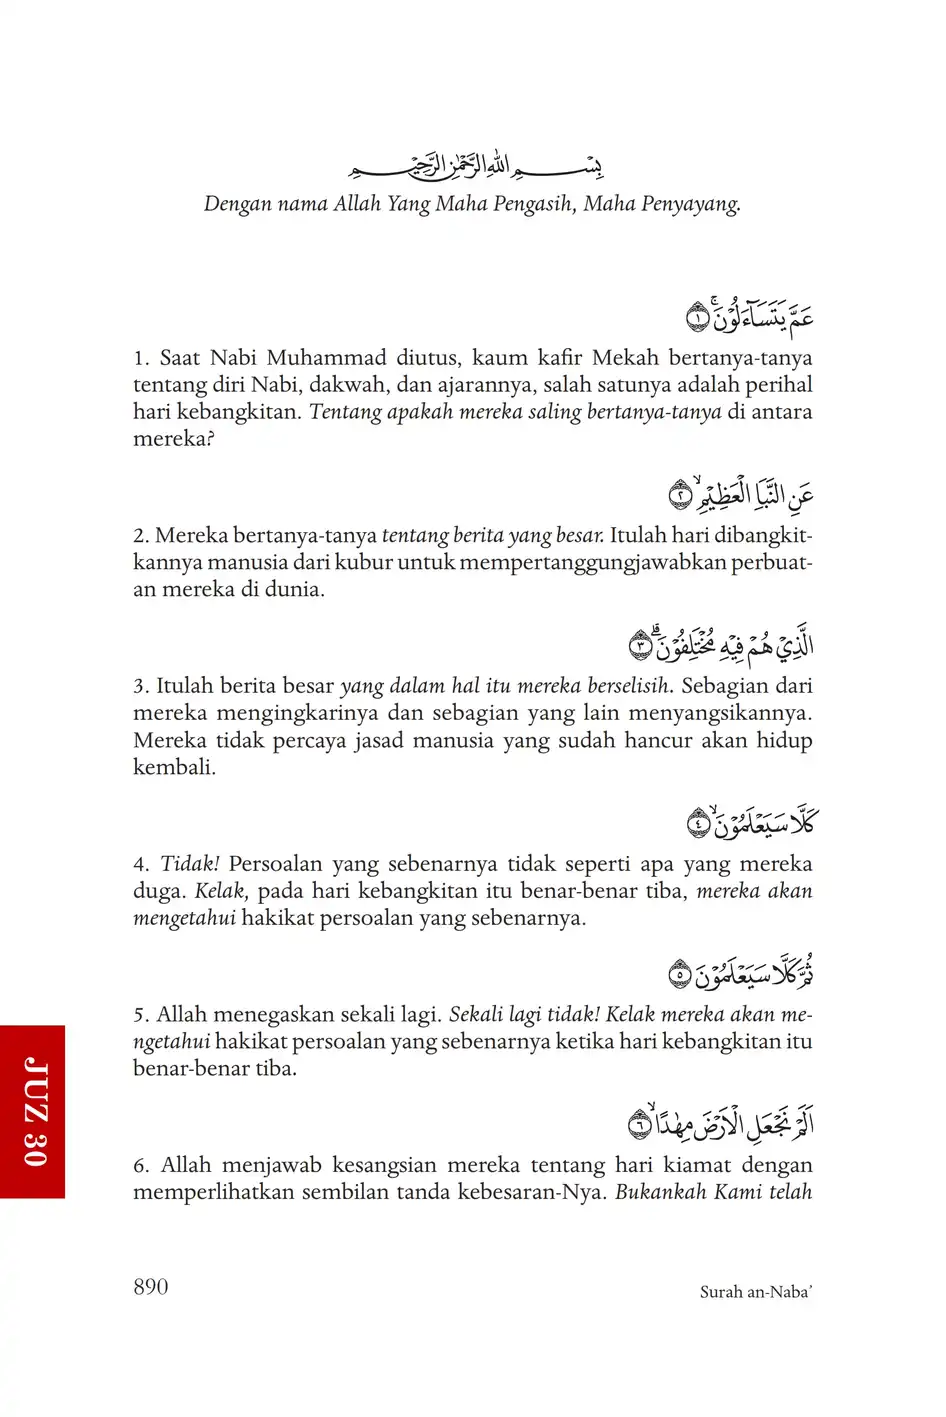 بِسْمِ اللّٰهِ الرَّحْمٰنِ الرَّحِيْمِ
Dengan nama Allah Yang Maha Pengasih, Maha Penyayang.
عَمَّ يَتَسَاۤءَلُوْنَۚ ۝١
1. Saat Nabi Muhammad diutus, kaum kafir Mekah bertanya-tanya
tentang diri Nabi, dakwah, dan ajarannya, salah satunya adalah perihal
hari kebangkitan. Tentang apakah mereka saling bertanya-tanya di antara
mereka?
عَنِ النَّبَاِ الْعَظِيْمِۙ ۝٢
2. Mereka bertanya-tanya tentang berita yang besar. Itulah hari dibangkit-
kannya manusia dari kubur untuk mempertanggungjawabkan perbuat-
an mereka di dunia.
الَّذِيْ هُمْ فِيْهِ مُخْتَلِفُوْنَۗ ۝٣
3. Itulah berita besar yang dalam hal itu mereka berselisih. Sebagian dari
mereka mengingkarinya dan sebagian yang lain menyangsikannya.
Mereka tidak percaya jasad manusia yang sudah hancur akan hidup
kembali.
كَلَّا سَيَعْلَمُوْنَۙ ۝٤
4. Tidak! Persoalan yang sebenarnya tidak seperti apa yang mereka
duga. Kelak, pada hari kebangkitan itu benar-benar tiba, mereka akan
mengetahui hakikat persoalan yang sebenarnya.
ثُمَّ كَلَّا سَيَعْلَمُوْنَ ۝٥
5. Allah menegaskan sekali lagi. Sekali lagi tidak! Kelak mereka akan me-
ngetahui hakikat persoalan yang sebenarnya ketika hari kebangkitan itu
benar-benar tiba.
اَلَمْ نَجْعَلِ الْاَرْضَ مِهٰدًاۙ ۝٦
6. Allah menjawab kesangsian mereka tentang hari kiamat dengan
memperlihatkan sembilan tanda kebesaran-Nya. Bukankah Kami telah
JUZ 30
890
Surah an-Naba’